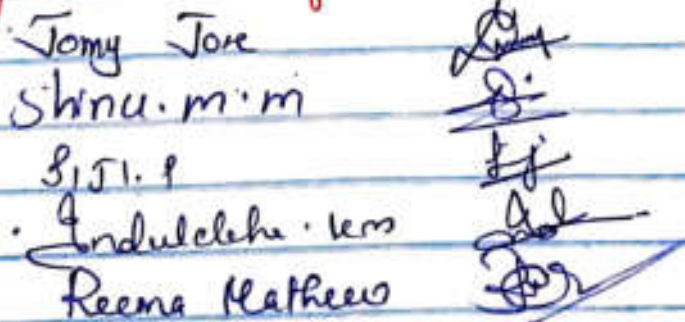 Tomy Jose
Shinu. m. m
SIJI. P
Indulekha. km
Reema Mathews